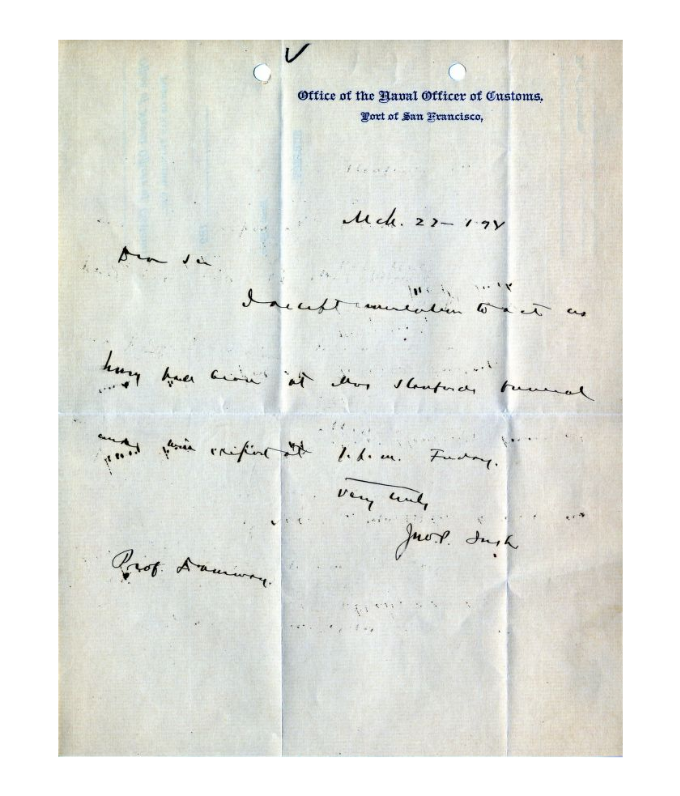 Office of the Naval Officer of Customs,
Port of San Francisco,
Mch. 22
Dear Sir
I accept invitation to act as
hony pall bearer at Mrs Stanfords funeral
and will report at 1 p.m. Friday.
Very truly
Jno. P.
Prof.